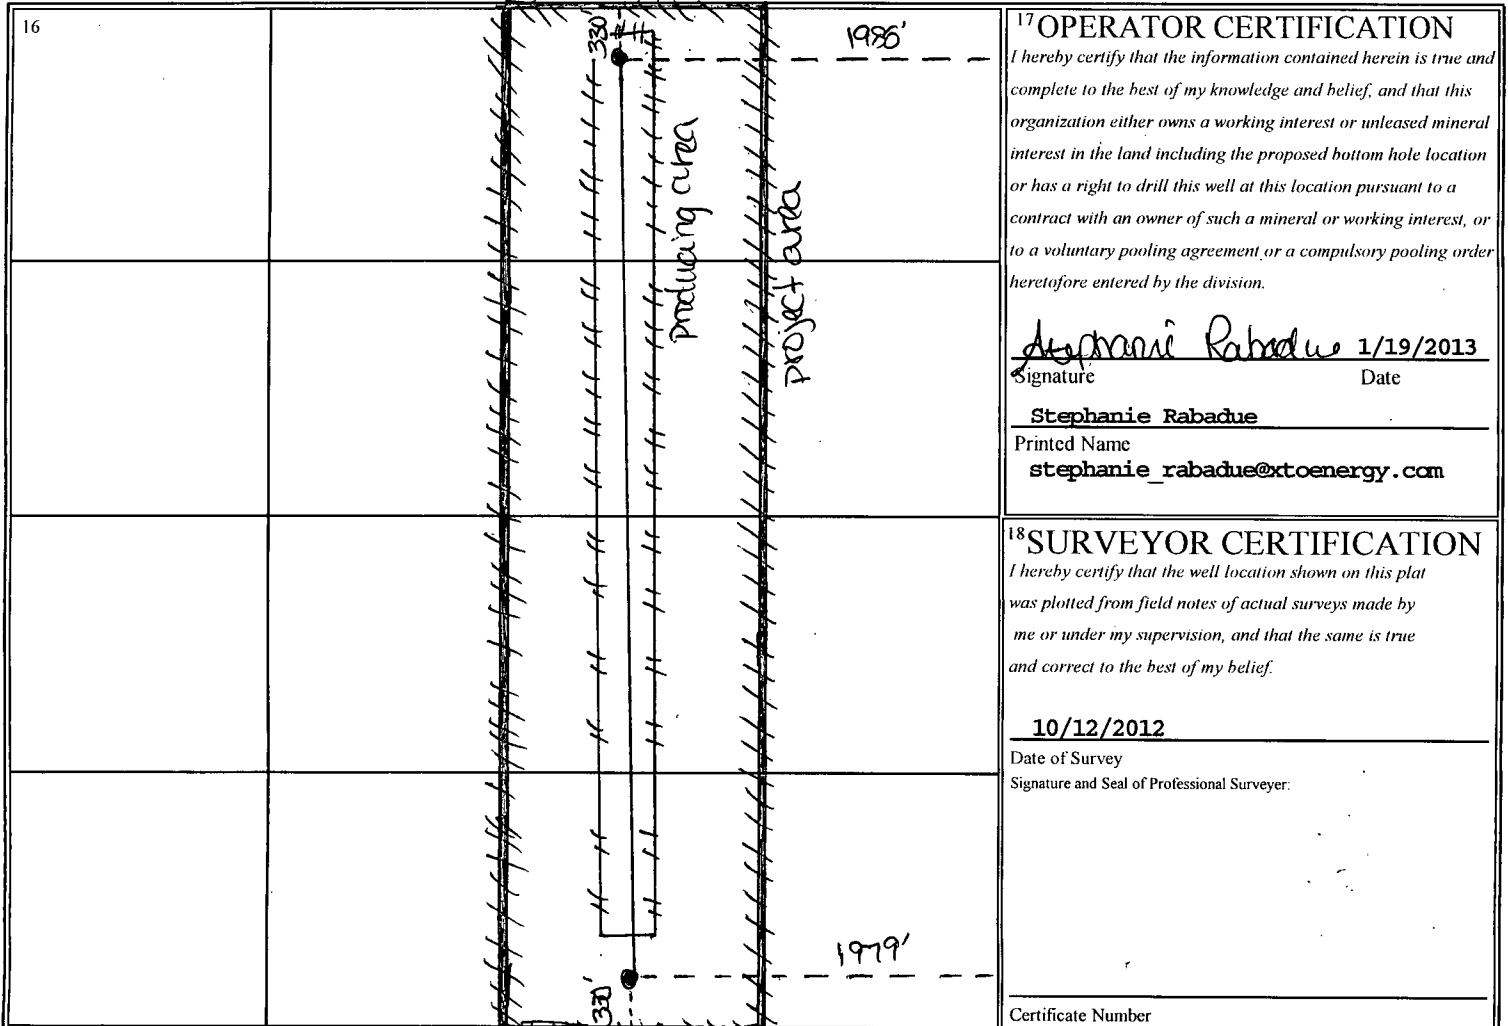 16
330'
1986'
producing area
project area
1979'
330'
17 OPERATOR CERTIFICATION
I hereby certify that the information contained herein is true and
complete to the best of my knowledge and belief, and that this
organization either owns a working interest or unleased mineral
interest in the land including the proposed bottom hole location
or has a right to drill this well at this location pursuant to a
contract with an owner of such a mineral or working interest, or
to a voluntary pooling agreement or a compulsory pooling order
heretofore entered by the division.
Stephanie Rabadue 1/19/2013
Signature Date
Stephanie Rabadue
Printed Name
stephanie_rabadue@xtoenergy.com
18 SURVEYOR CERTIFICATION
I hereby certify that the well location shown on this plat
was plotted from field notes of actual surveys made by
me or under my supervision, and that the same is true
and correct to the best of my belief.
10/12/2012
Date of Survey
Signature and Seal of Professional Surveyer:
Certificate Number